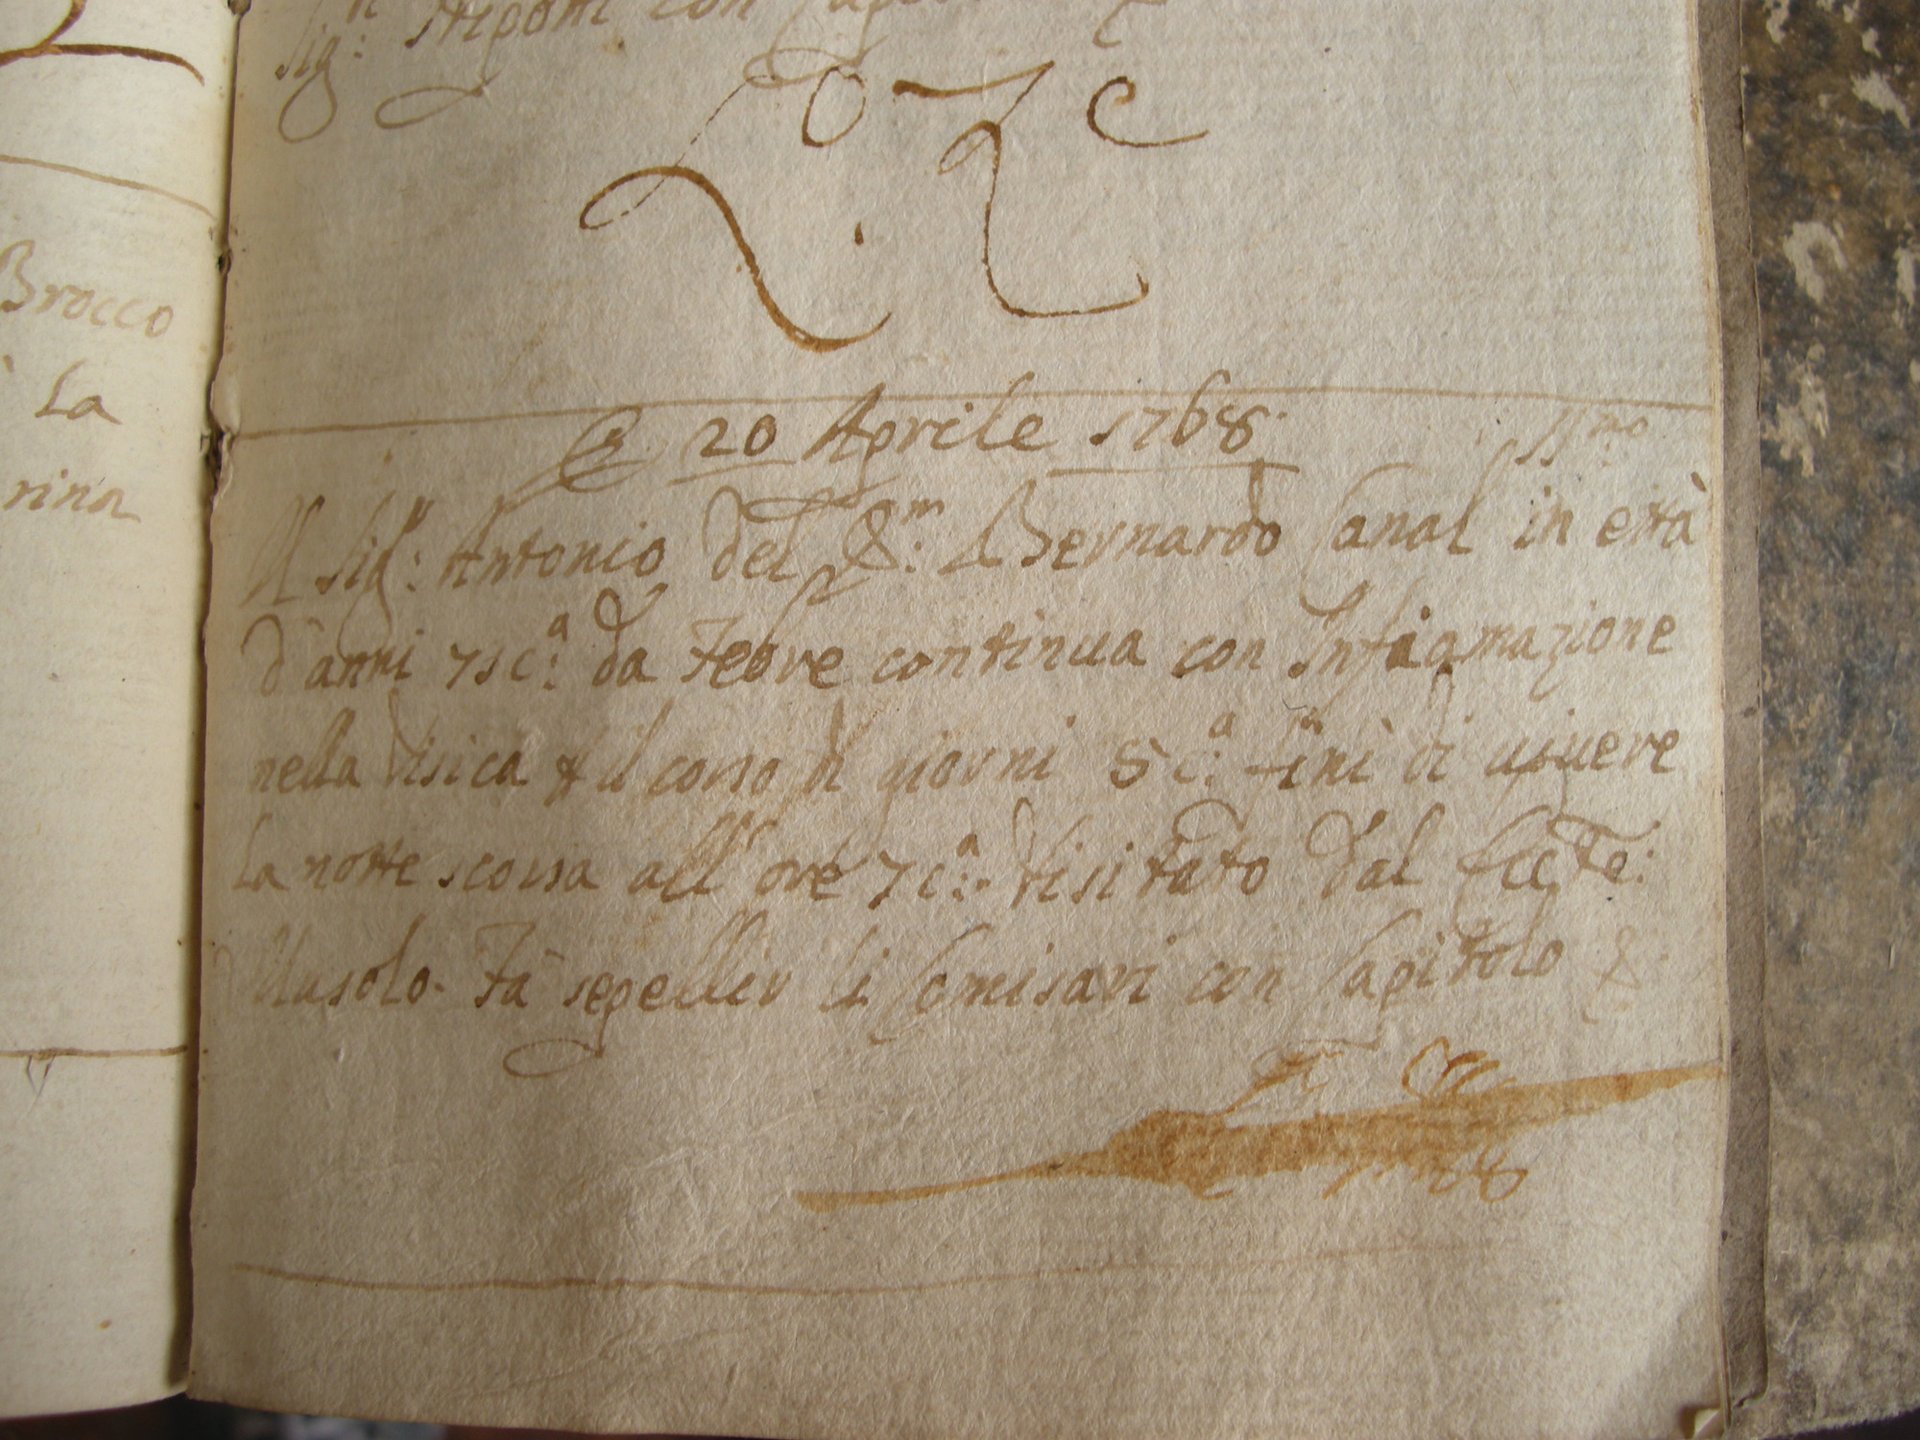 Sig:
Brocco
La
rina
20 Aprile 1768
Il Sig:r Antonio del Q:m Bernardo Canal in età
d'anni 71 c:a da Febre continua con Infiamazione
nella Visica il corso di giorni 5 c:a finì di uiuere
La notte scorsa all'ore 7 c:a Visitato dal Ecc.te:
Musolo. Fà sepellir li Comisari con Capitolo &